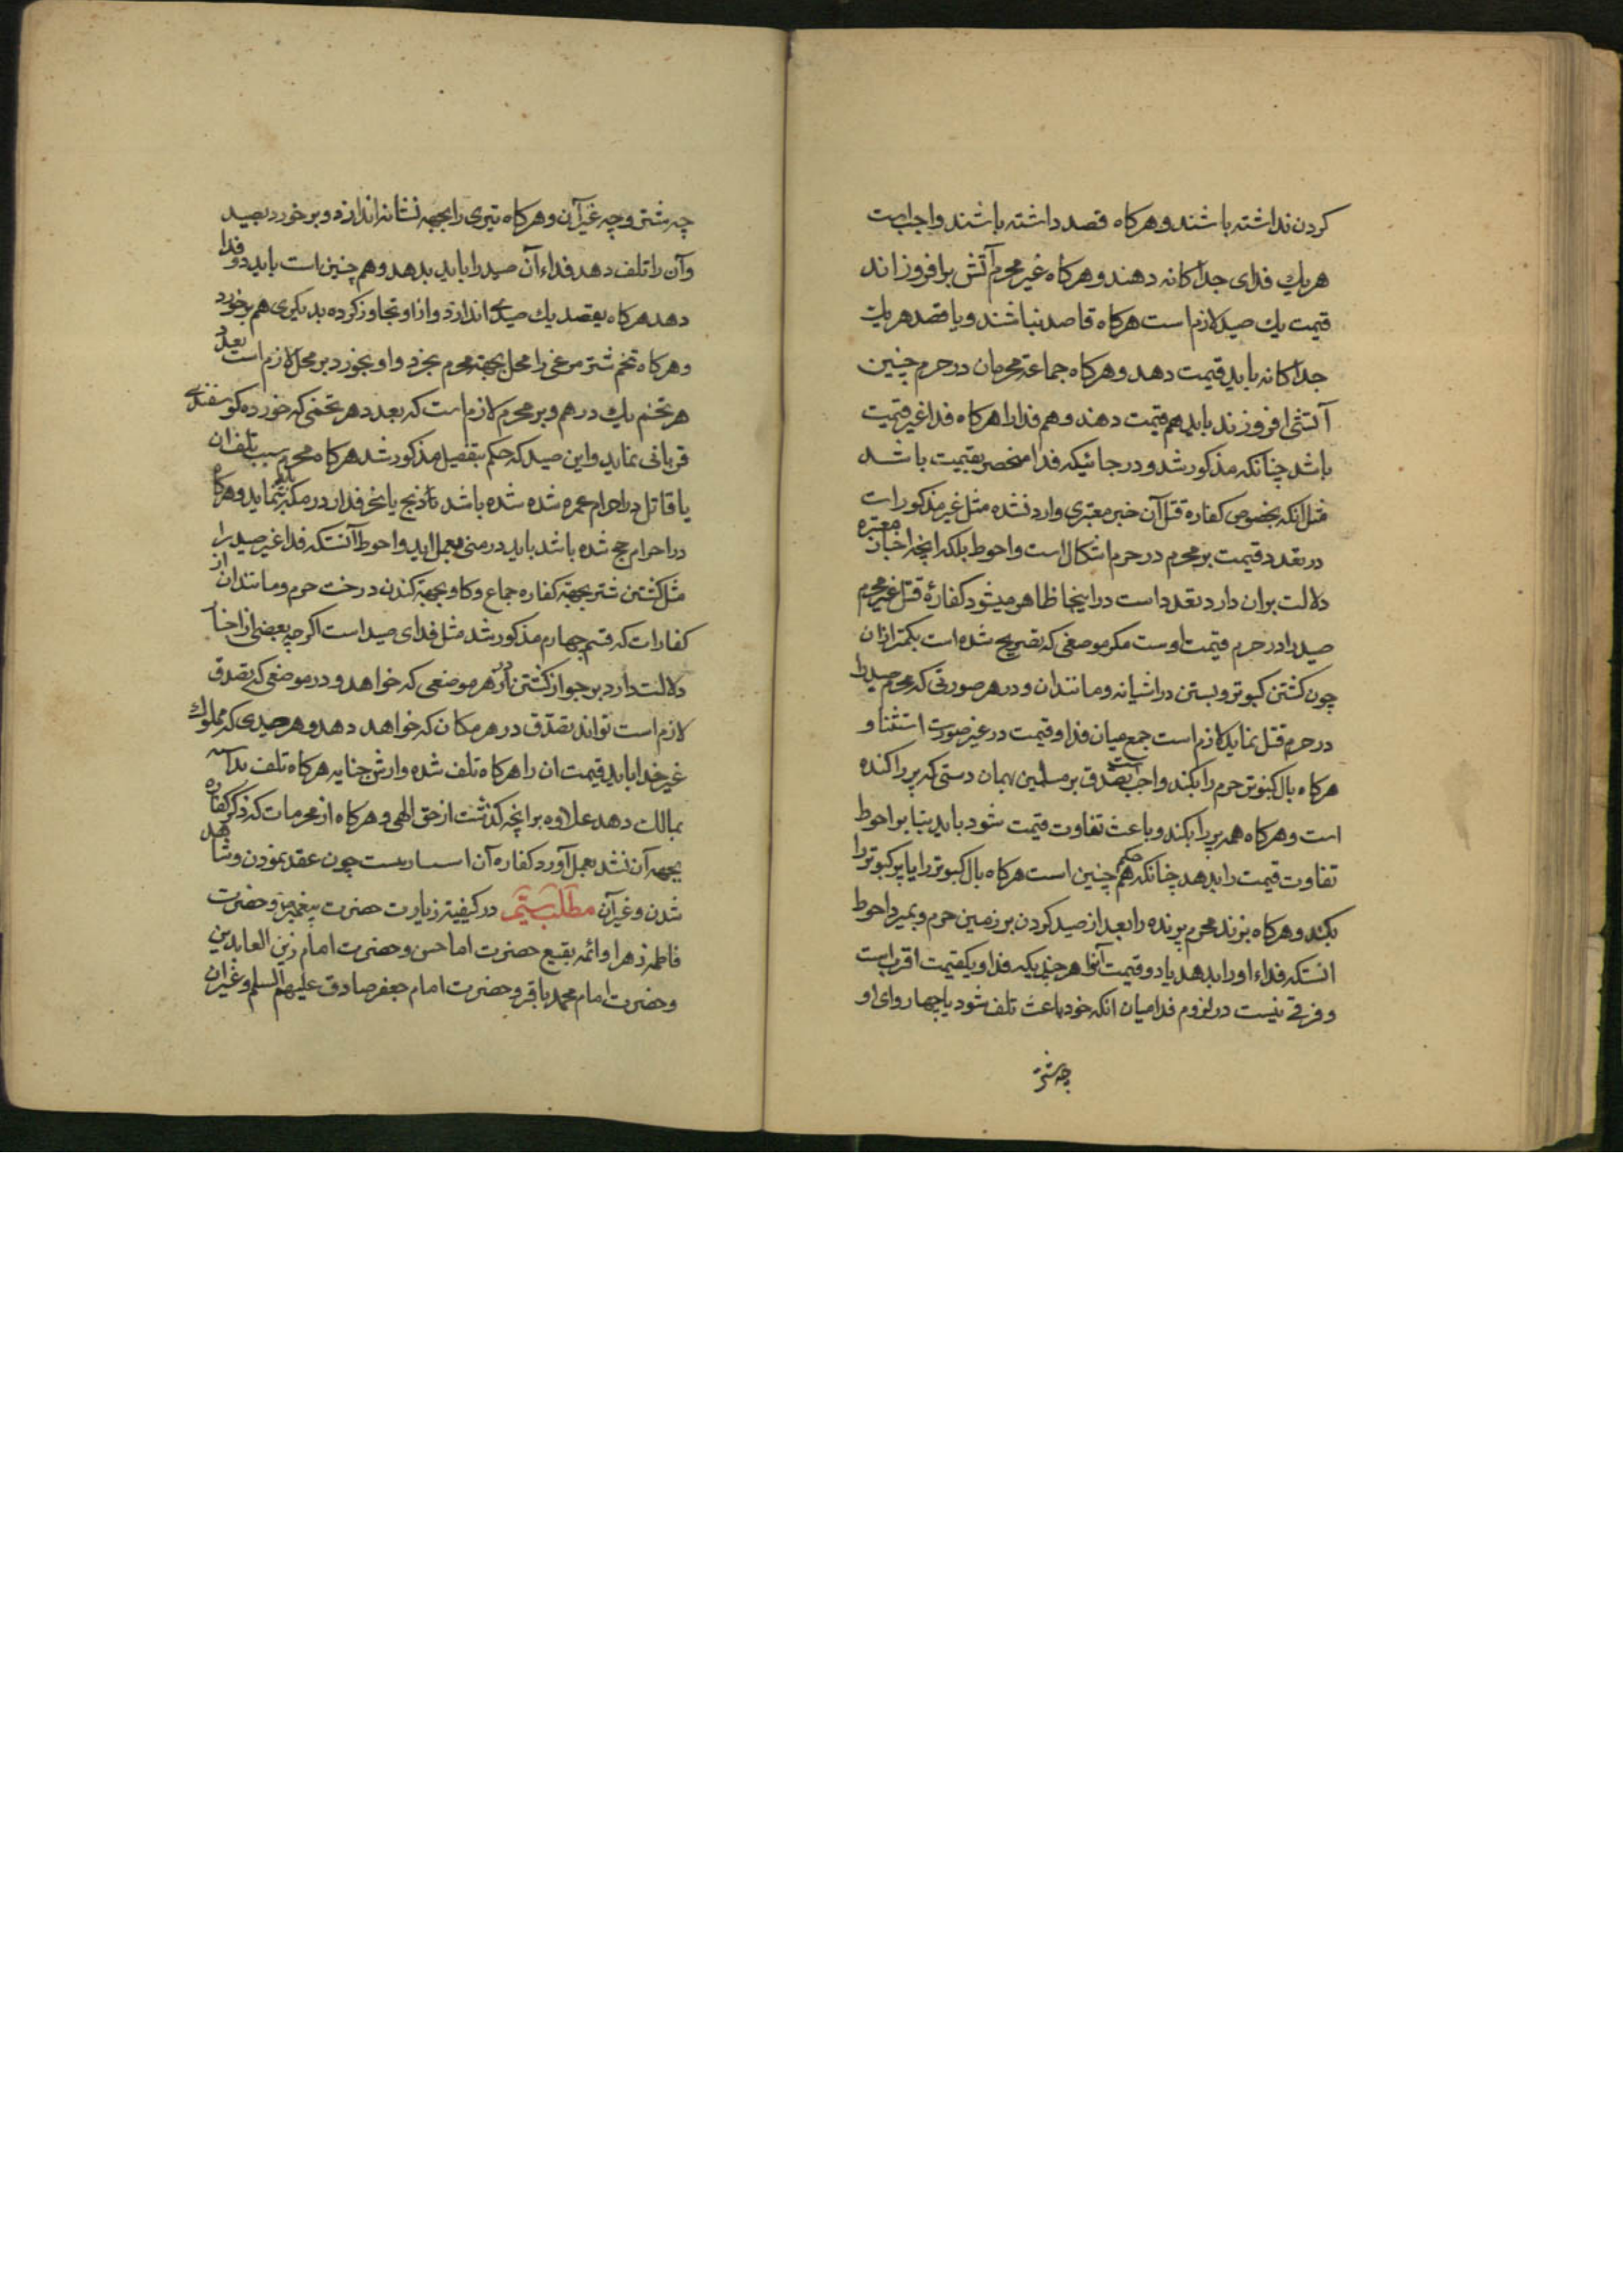 کردن نداشته باشند و هرکاه قصد داشته باشند واجبست
هریك فدای جداکانه دهند و هرکاه غیر محرم آتش برافروزاند
قیمت یك صید لازم است هرکاه قاصد نباشند و با قصد هریك
جداکانه باید قیمت دهد و هرکاه جماعة محرمان در حرم چنین
آتشی افروزند باید هم قیمت دهند و هم فدا را هرکاه فدا غیر قیمت
باشد چنانکه مذکور شد و در جائیکه فدا منحصر بقیمت باشد
مثل آنکه بخصوص کفاره قتل آن خبر معتبری وارد نشده مثل غیر مذکورات
در تعدد قیمت بر محرم در حرم اشکال است و احوط بلکه اینجه اخبار معتبره
دلالت بران دارد تعدد است در اینجا ظاهر میشود کفارهٔ قتل غیر محرم
صید را در حرم قیمت اوست مکر موضعی که تصریح شده است بکمتر ازان
چون کشتن کبوتر و بستن در اشیانه و مانندان و در هر صورتی که محرم صید را
در حرم قتل نماید لازم است جمع میان فدا و قیمت در غیر صورت استثنا و
هرکاه بال کبوتر حرم را بکند واجب است تصدق بر مسلمین بهمان دستی که پر را کنده
است و هرکاه همه پر را بکند و باعث تفاوت قیمت شود باید بنا بر احوط
تفاوت قیمت را بدهد چنانکه حکم هم چنین است هرکاه بال کبوتر را یا پر کبوتر را
بکند و هرکاه بزند محرم پرنده را بعد از صید کردن بر زمین حرم و بمیرد احوط
انستکه فداء او را بدهد با دو قیمت آنرا هر چند یکه فدا و یکقیمت اقربست
و فرقی نیست در لزوم فدا میان انکه خود باعث تلف شود یا چهار وای او
چه شتر
چه شتر و چه غیر آن و هرکاه تیری را بجهه نشانه اندازد و بر خورد بصید
وآن را تلف دهد فداء آن صید را باید بدهد و هم چنین است باید دو فدا
دهد هرکاه بقصد یك صیدی اندازد و از او تجاوز کرده بدیکری هم بر خورد
و هرکاه تخم شتر مرغی را محل بجهة محرم بخرد و او بخورد بر محل لازم است بعدد
هر تخم یك درهم و بر محرم لازم است که بعدد هر تخمی که خورده کوسفندی
قربانی نماید و این صید که حکم بتفصیل مذکور شد هرکاه محرم سبب تلف ان
یا قاتل در احرام عمره شده شده باشد باید ذبح یا نحر فدا را در مکه نماید و هرکاه
در احرام حج شده باشد باید در منی بعمل اید و احوط آنستکه فدا غیر صید را
مثل کشتن شتر بجهة کفاره جماع و کاو بجهة کندن درخت حرم و مانندان از
کفارات که قسم چهارم مذکور شد مثل فدای صید است اکر چه بعضی از اخبا
دلالت دارد بر جواز کشتن در هر موضعی که خواهد و در موضعی که تصدق
لازم است تواند تصدق در هر مکان که خواهد دهد و هر صیدی که مملوك
غیر خدا باید قیمت ان را هرکاه تلف شده و ارش جنایه هرکاه تلف
بمالك دهد علاوه بر انچه کذشت از حق الهی و هرکاه از محرمات که ذکر کفاره
بجهه آن نشد بعمل آورد کفاره آن است چون عقد نمودن و شاهد
شدن و غیر آن مطلب ستیم در کیفیت زیارت حضرت پیغمبر و حضرت
فاطمه زهرا و ائمه بقیع حضرت اما حسن و حضرت امام زین العابدین
و حضرت امام محمد باقر و حضرت امام جعفر صادق علیهم السلم و غیر ان